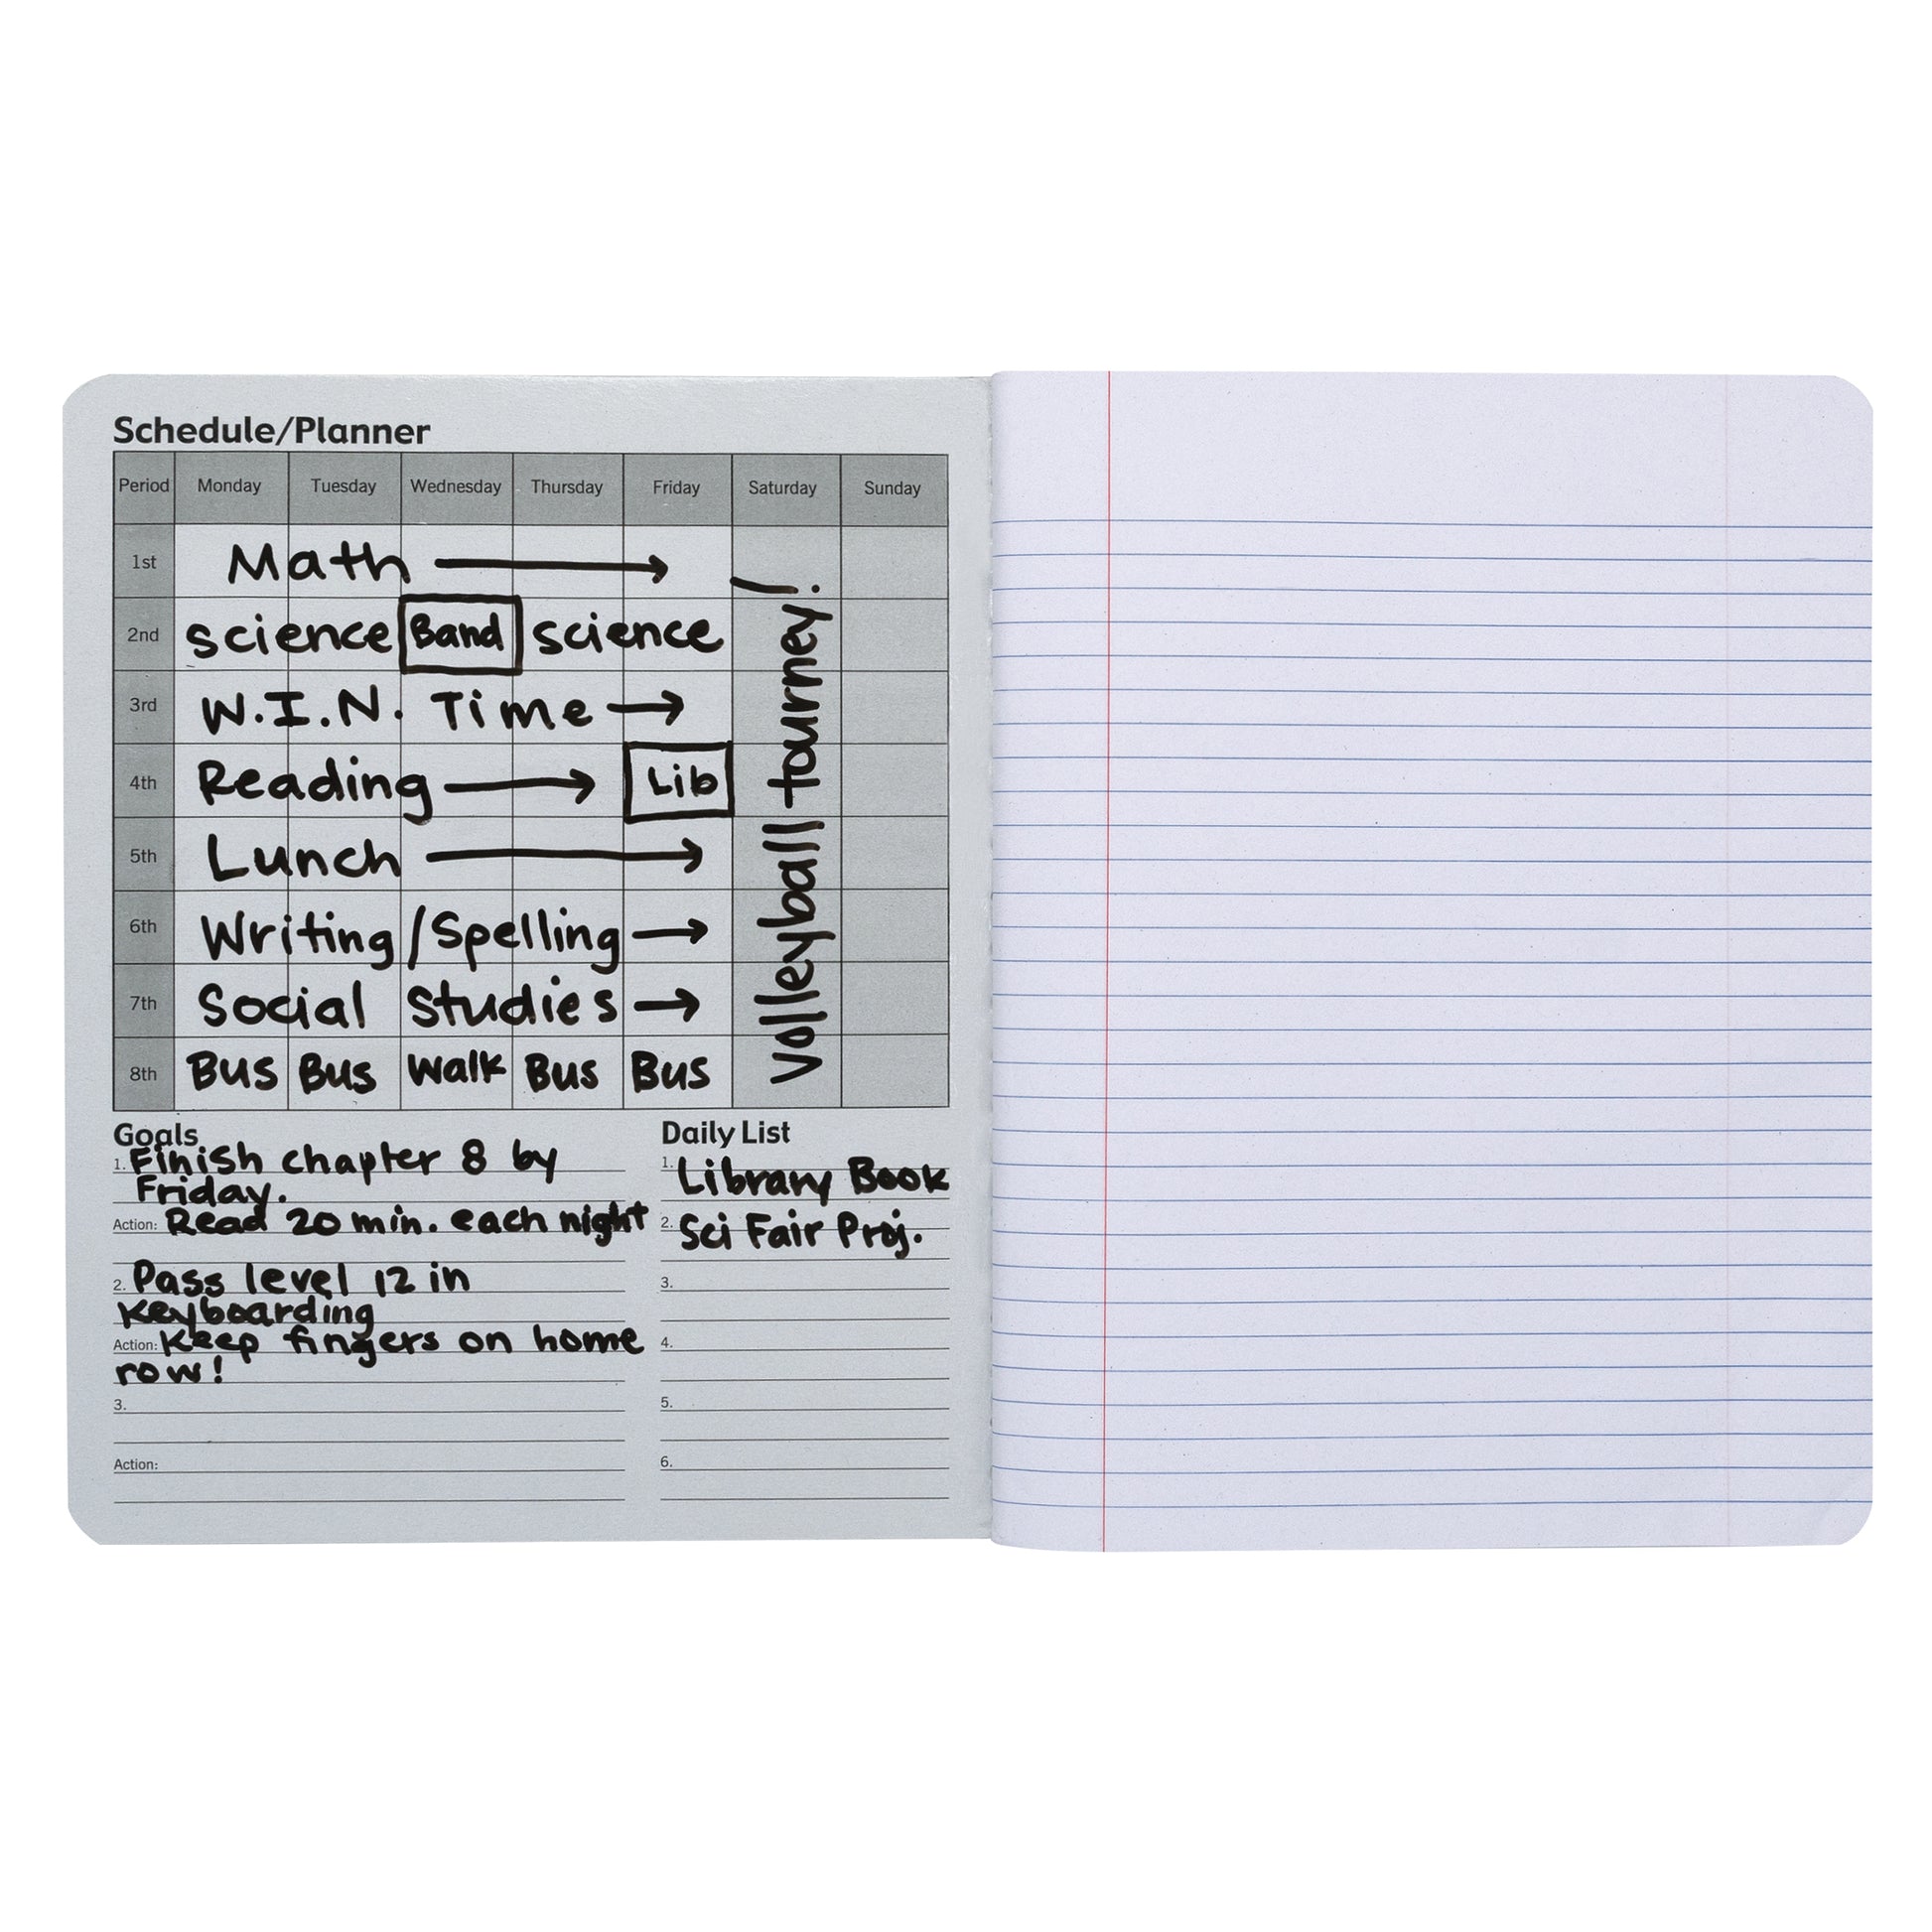 Schedule/Planner
Period Monday Tuesday Wednesday Thursday Friday Saturday Sunday
1st Math
2nd science Band science
3rd W.I.N. Time
4th Reading Lib
5th Lunch
6th Writing/Spelling
7th Social Studies
8th Bus Bus Walk Bus Bus
Volleyball tourney!
Goals
1. Finish chapter 8 by
Friday.
Action: Read 20 min. each night
2. Pass level 12 in
Keyboarding
Action: Keep fingers on home
row!
3.
Action:
Daily List
1. Library Book
2. Sci Fair Proj.
3.
4.
5.
6.